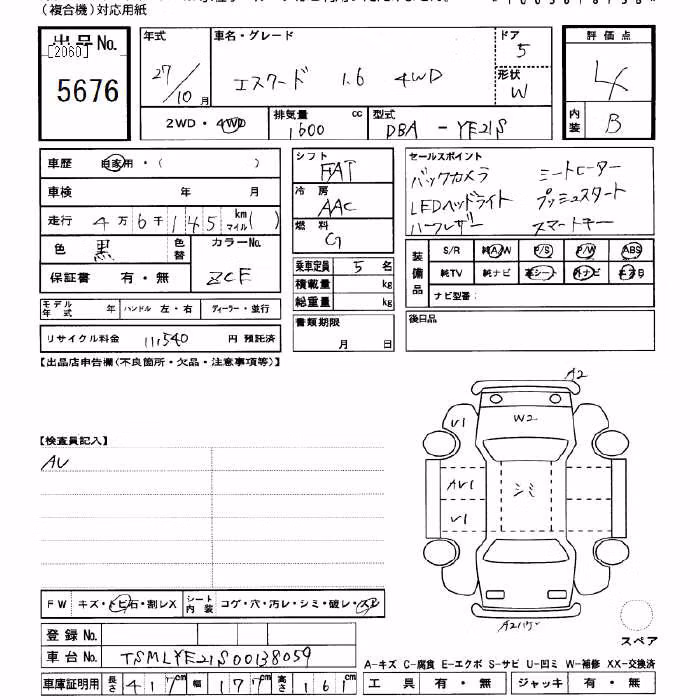 (複合機)対応用紙
出品No.
[2060]
5676
年式
27/10月
車名・グレード
エスクード 1.6 4WD
ドア
5
形状
W
評価点
4
内装
B
2WD・4WD
排気量
1600 cc
型式
DBA - YE21S
車歴 自家用・( )
車検 年 月
走行 4万6千145 km マイル( )
色 黒 色替
カラーNo.
ZCE
保証書 有・無
モデル年式 年 ハンドル 左・右 ディーラー・並行
リサイクル料金 11,540 円 預託済
シフト
FAT
冷房
AAC
燃料
G
乗車定員 5 名
積載量 kg
総重量 kg
書類期限
月 日
セールスポイント
バックカメラ シートヒーター
LEDヘッドライト プッシュスタート
ハーフレザー スマートキー
装備品
S/R 純A/W P/S P/W ABS
純TV 純ナビ 革シート 外ナビ エアB
ナビ型番:
後日品
【出品店申告欄(不良箇所・欠品・注意事項等)】
【検査員記入】
AV
A2
V1
W2
AV1
シミ
V1
スペア
FW キズ・トビ石・割レX シート内装 コゲ・穴・汚レ・シミ・破レ・スレ
登録No.
車台No. TSMLYE21S00138059
車庫証明用 長さ 417cm 幅 177cm 高さ 161
A-キズ C-腐食 E-エクボ S-サビ U-凹ミ W-補修 XX-交換済
工具 有・無 ジャッキ 有・無